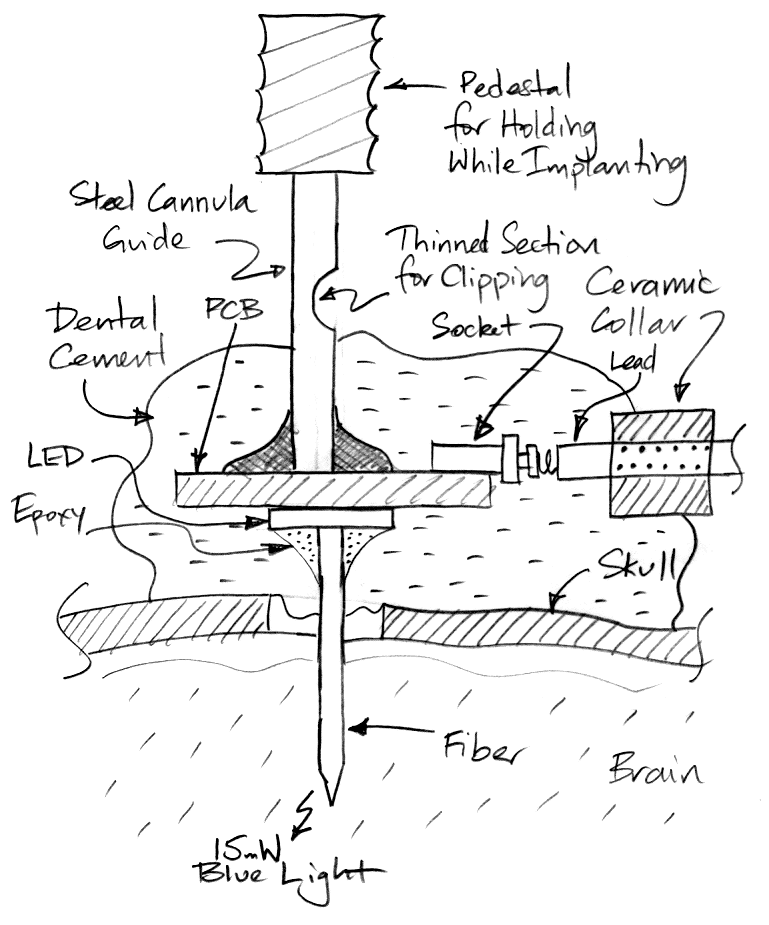 Pedestal
for Holding
While Implanting
Steel Cannula
Guide
Thinned Section
for Clipping
Ceramic
Collar
Dental
Cement
PCB
Socket
Lead
LED
Epoxy
Skull
Fiber
Brain
15mW
Blue Light